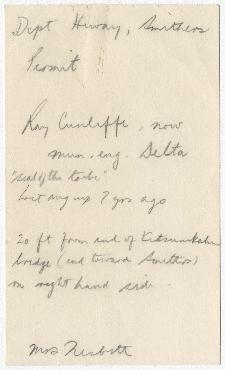 Dept Hiway, Smithers
Permit
Ray Cunliffe, now
mun. eng. Delta
"seal of the
Lost ring up 7 yrs ago
20 ft from end of Kitsumkalum
bridge (end toward Smithers)
on right hand side.
Mrs Nesbitt